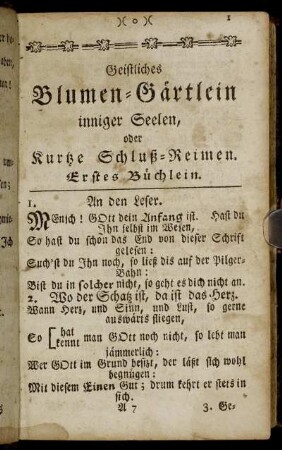 )( o )( 1
Geistliches
Blumen-Gärtlein
inniger Seelen,
oder
Kurtze Schluß-Reimen.
Erstes Büchlein.
1. An den Leser.
MEnsch! GOtt dein Anfang ist. Hast du
Ihn selbst im Wesen,
So hast du schon das End von dieser Schrift
gelesen:
Such'st du Ihn noch, so ließ dis auf der Pilger-
Bahn:
Bist du in solcher nicht, so geht es dich nicht an.
2. Wo der Schatz ist, da ist das Herz.
Wann Herz, und Sinn, und Lust, so gerne
auswärts fliegen,
So [hat
kennt man GOtt noch nicht, so lebt man
jämmerlich:
Wer GOtt im Grund besizt, der läßt sich wohl
begnügen:
Mit diesem Einen Gut; drum kehrt er stets in
sich.
A 7 3. Ge-